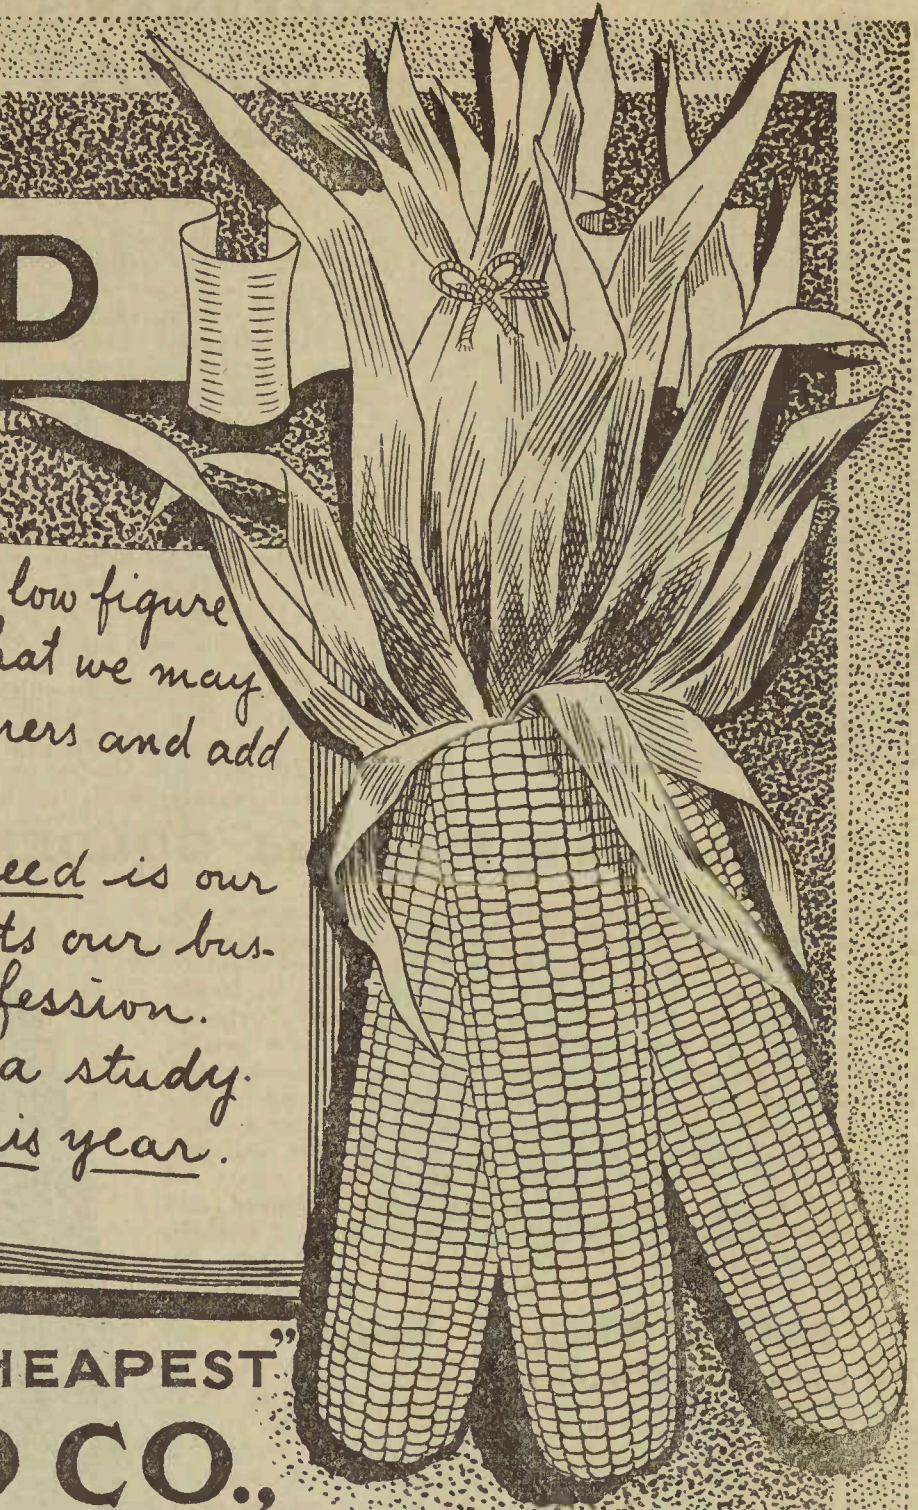 D
low figure
hat we may
ners and add
eed is our
ts our bus-
fession.
a study.
is year.
HEAPEST"
D CO.,